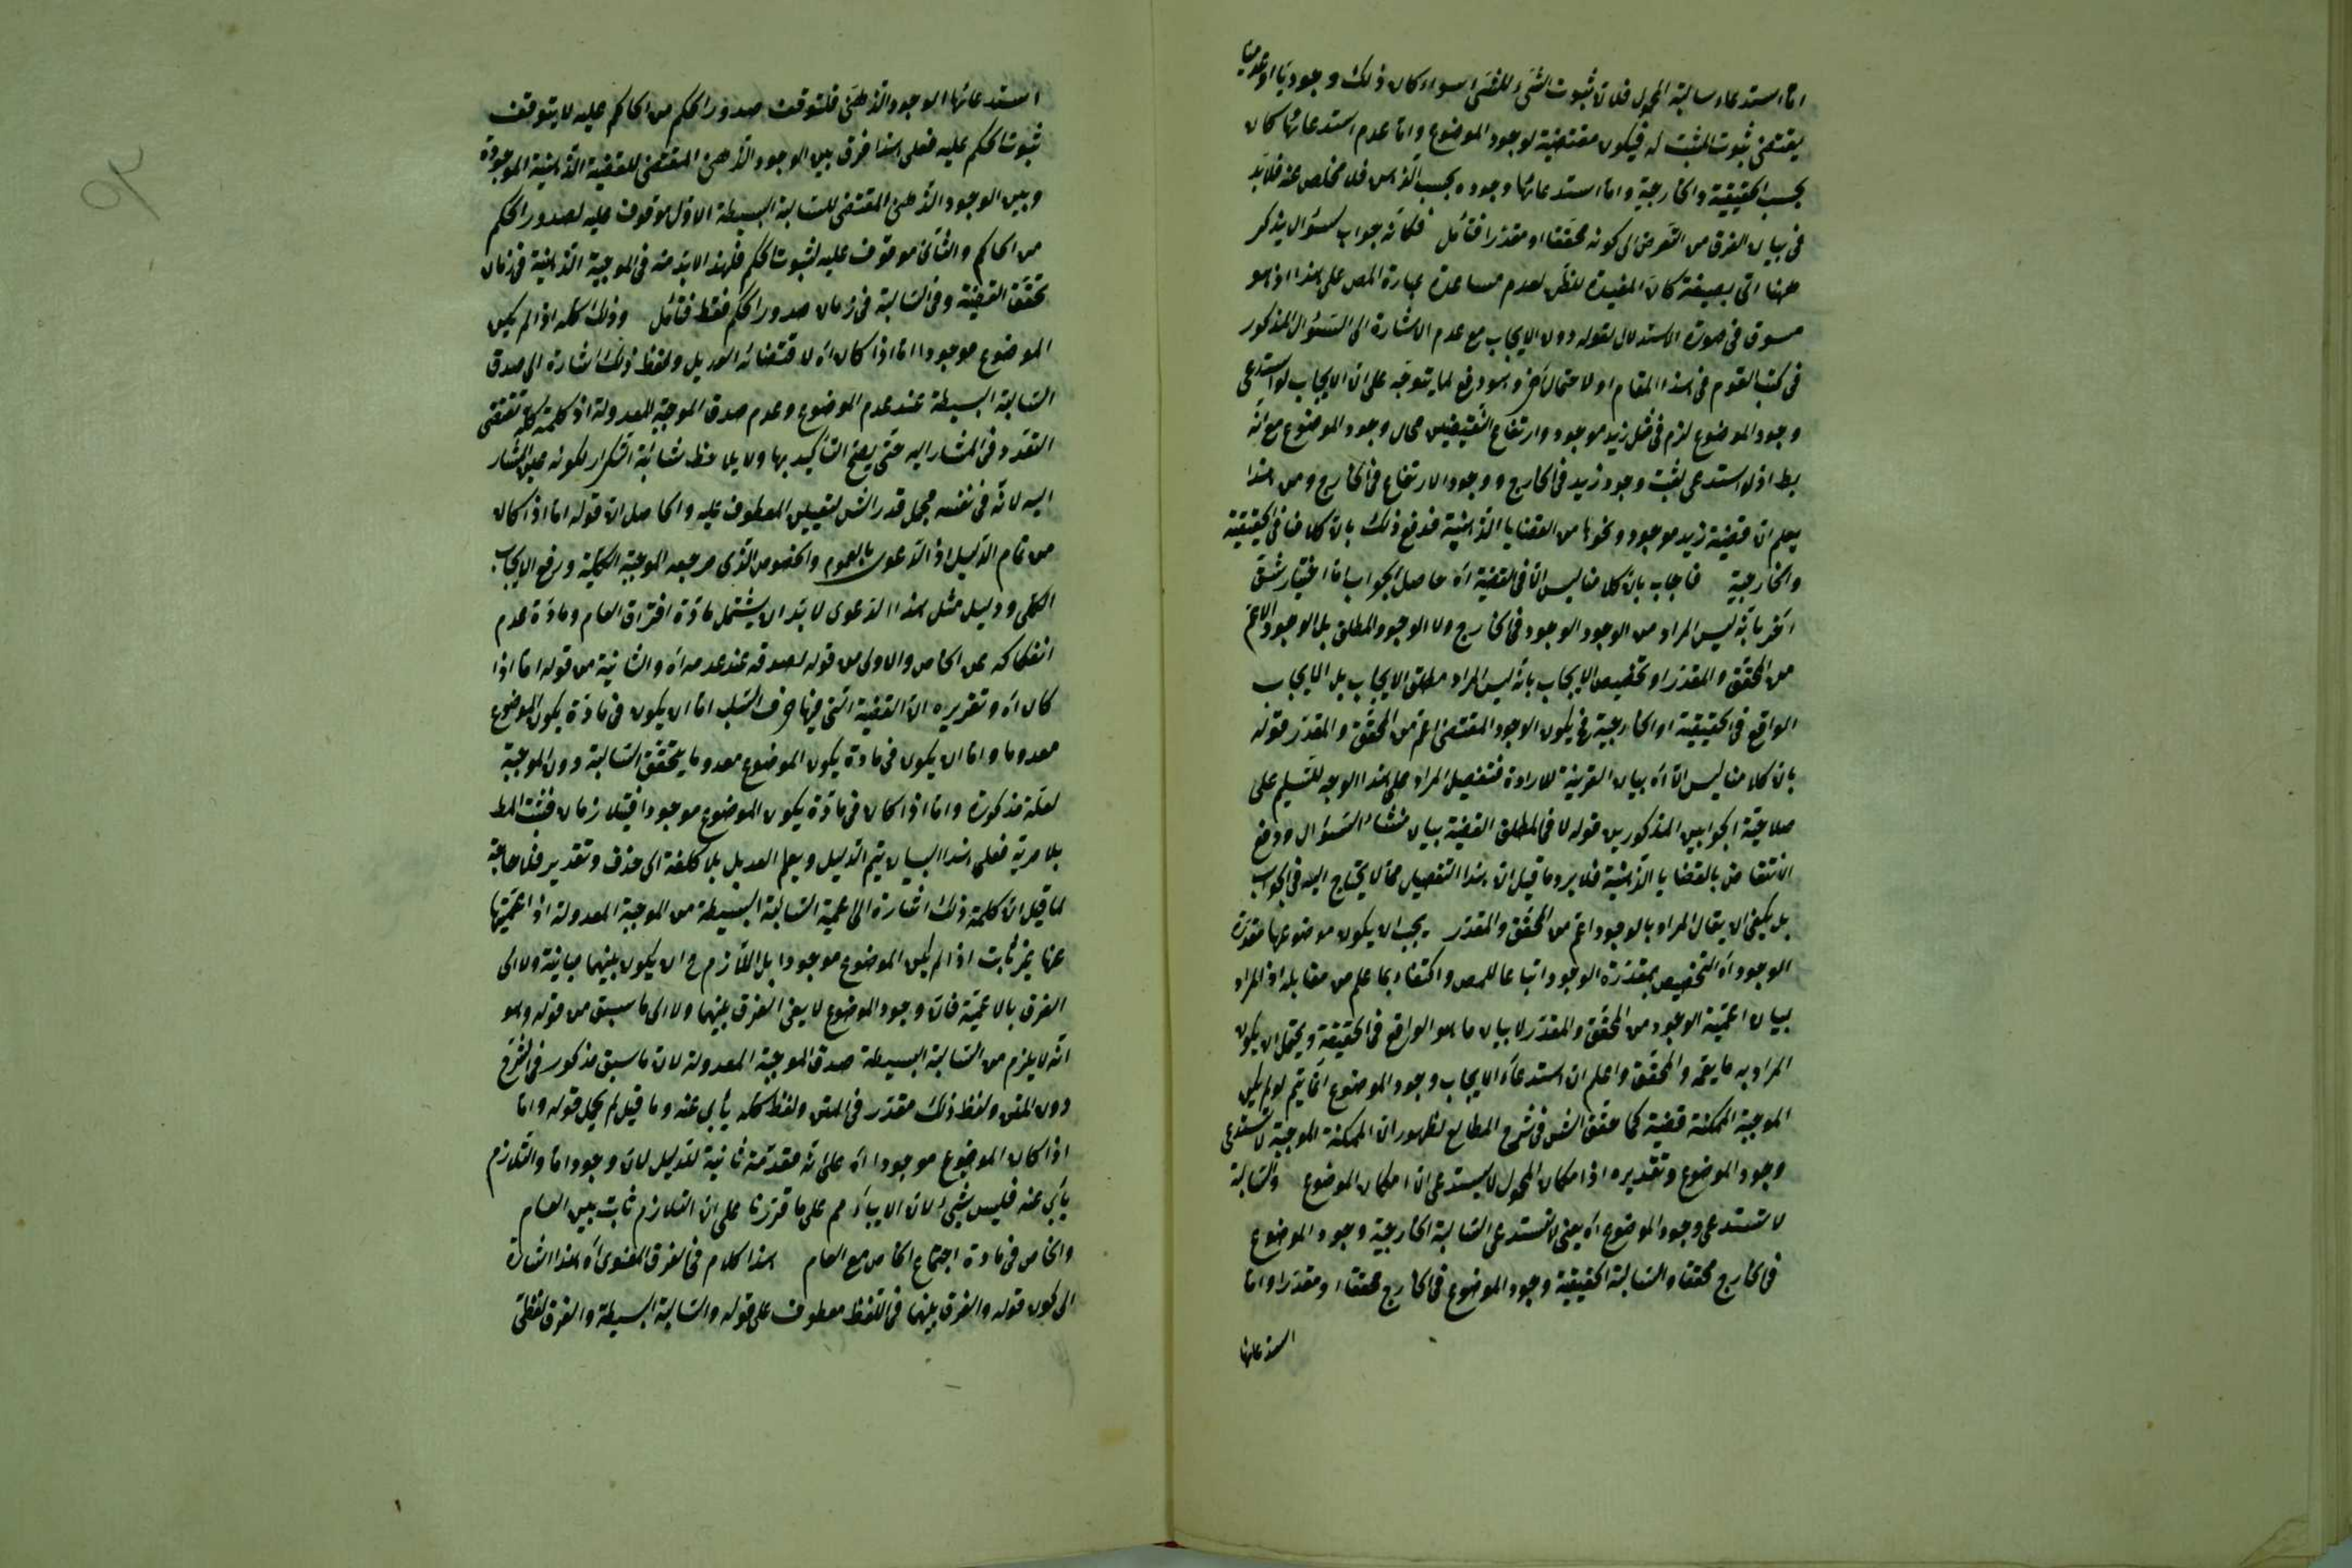 اما استدعاء سالبة المحمول فلان ثبوت الشئ للشئ سواء كان ذلك وجوديا او عدميا
يقتضى ثبوت المثبت له فيكون مقتضية لوجود الموضوع واما عدم استدعائها كان
بحسب الحقيقية والخارجية واما استدعائها وجوده بحسب الذهن فلا مخلص عنه فلابد
فى بيان الفرق من التعرض الى كونه محققا او مقدرا فتأمل فكانه جواب لسؤال يذكر
ههنا اتى بصيغة كان المفيدة للظن لعدم مساعدة عبارة المص على هذا اذ هو
مسوق فى صورة الاستدلال لقوله دون الايجاب مع عدم الاشارة الى السؤال المذكور
فى كتب القوم فى هذا المقام او لاحتمال آخر وهو دفع لما يتوجه على ان الايجاب لو استدعى
وجود الموضوع لزم فى مثل زيد موجود وارتفاع النقيضين محال وجود الموضوع مع انه
بط اذ لو استدعى لثبت وجود زيد فى الخارج ووجود الارتفاع فى الخارج ومن هذا
يعلم ان قضية زيد موجود ونحوها من القضايا الذهنية فدفع ذلك بان كلامنا فى الحقيقية
والخارجية فاجاب بان كلامنا ليس الا فى القضية اه حاصل الجواب اما اختيار شق
آخر بانه ليس المراد من الوجود الوجود فى الخارج ولا الوجود المطلق بل الوجود الاعم
من المحقق والمقدر او تخصيص الايجاب بانه ليس المراد مطلق الايجاب بل الايجاب
الواقع فى الحقيقية او الخارجية فح يكون الوجود المقتضى اعم من المحقق والمقدر فقوله
بان كلامنا ليس الا اه بيان القرينة للارادة فتفصيل المراد على هذا الوجه للتسليم على
صلاحية الجوابين المذكورين قوله لا فى مطلق القضية بيان منشاء السؤال ودفع
الانتقاض بالقضايا الذهنية فلا يرد ما قيل ان هذا التفصيل مما لا يحتاج اليه فى الجواب
بل يكفى ان يقال المراد بالوجود اعم من المحقق والمقدر يجب ان يكون موضوعها مقدرة
الوجود اه التخصيص بمقدرة الوجود اتباعا للمص واكتفاء بما علم من مقابله اذ المراد
بيان اعمية الوجود من المحقق والمقدر لا بيان ما هو الواقع فى الحقيقة ويحتمل ان يكون
المراد به ما يعمه والمحقق واعلم ان استدعاء الايجاب وجود الموضوع انما يتم لو لم يكن
الموجبة الممكنة قضية كما حقق الشر فى شرح المطالع لظهور ان الممكنة الموجبة لا تستدعى
وجود الموضوع وتقديره اذ امكان المحمول لا يستدعى الا امكان الموضوع والسالبة
لا تستدعى وجود الموضوع اه يعنى لا تستدعى السالبة الخارجية وجود الموضوع
فى الخارج محققا والسالبة الحقيقية وجود الموضوع فى الخارج محققا او مقدرا واما
استدعائها
استدعائها الوجود الذهنى فلتوقف صدور الحكم من الحاكم عليه لا يتوقف
ثبوت الحكم عليه فعلى هذا فرق بين الوجود الذهنى المقتضى للقضية الذهنية الموجودة
وبين الوجود الذهنى المقتضى للسالبة البسيطة الاول موقوف عليه لصدور الحكم
من الحاكم والثانى موقوف عليه لثبوت الحكم فلهذا لابد منه فى الموجبة الذهنية فى زمان
تحقق القضية وفى السالبة فى زمان صدور الحكم فقط فتأمل وذلك كله اذا لم يكن
الموضوع موجودا اما اذا كان اه لاقتضائه العديل ولفظ ذلك اشارة الى صدق
السالبة البسيطة عند عدم الموضوع وعدم صدق الموجبة المعدولة اذ كلمة كله تقتضى
التعدد فى المشار اليه حتى يصح التأكيد بها ولا يلاحظ شائبة التكرار لكونه عين المشار
اليه لانه فى نفسه مجمل قدر الشر لتعيين المعطوف عليه والحاصل ان قوله اما اذا كان
من تمام الدليل اذ الدعوى بالعموم والخصوص الذى مرجعه الموجبة الكلية ورفع الايجاب
الكلى ودليل مثل هذا الدعوى لابد ان يشتمل مادة افتراق العام ومادة عدم
انفكاكه عن الخاص والاولى من قوله لصدقه عند عدمه اه والثانية من قوله اما اذا
كان اه وتقريره ان القضية التى فيها حرف السلب اما ان يكون فى مادة يكون الموضوع
معدوما واما ان يكون فى مادة يكون الموضوع معدوما يتحقق السالبة دون الموجبة
لعلة مذكورة واما اذا كان فى مادة يكون الموضوع موجودا فيتلازمان فثبت المط
بلا مرية فعلى هذا البيان يتم الدليل ويعلم العديل بلا كلفة الى حذف وتقدير فلا حاجة
لما قيل ان كلمة ذلك اشارة الى اعمية السالبة البسيطة من الموجبة المعدولة اذ اعميتها
عنها غير ثابت اذا لم يكن الموضوع موجودا بل اللازم ح ان يكون بينهما مباينة ولا الى
الفرق بالاعمية فان وجود الموضوع لا ينفى الفرق بينهما ولا الى ما سبق من قوله وهو
انه لا يلزم من السالبة البسيطة صدق الموجبة المعدولة لان ما سبق مذكور فى الشرح
دون المتن ولفظ ذلك مقدر فى المتن ولفظ كله يأبى عنه وما قيل لم يجعل قوله واما
اذا كان الموضوع موجودا اه على انه مقدمة ثانية للدليل لان وجود اما والتلازم
يأبى عنه فليس بشئ لان الاباء مم على ما قررنا على ان التلازم ثابت بين العام
والخاص فى مادة اجتماع الخاص مع العام هذا كلام فى الفرق المعنوى اه هذا اشارة
الى كون قوله والفرق بينهما فى اللفظ معطوف على قوله والسالبة البسيطة والفرق لفظى